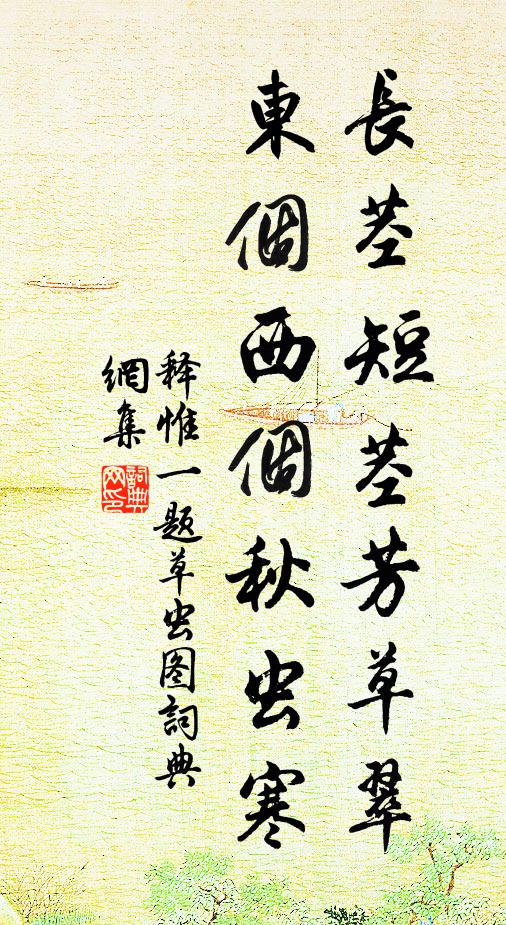 長茎短茎芳草翠
東個西個秋虫寒
释惟一题草虫图詞典
網集
詞典网印